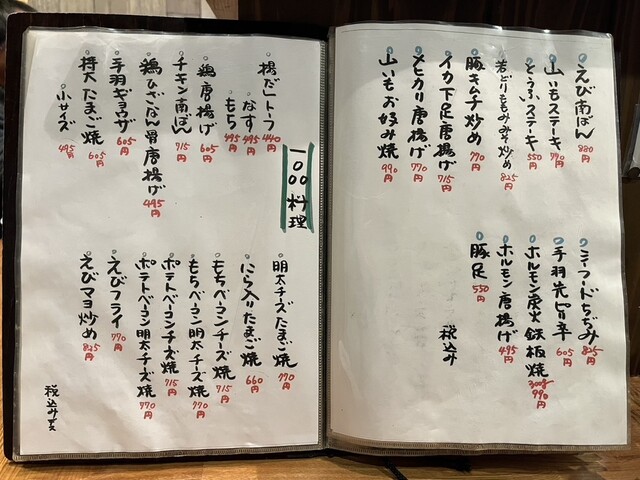 えび南ばん 880円
山いもステーキ 770円
とうふステーキ 550円
若どりもみみそ炒め 825円
豚キムチ炒め 770円
イカ下足唐揚げ 715円
メヒカリ唐揚げ 770円
山いもお好み焼 990円
シーフードちぢみ 825円
手羽先ピリ辛 605円
ホルモン炭火鉄板焼 300g 990円
ホルモン唐揚げ 495円
豚足 550円
税込み
一品料理
揚だしトーフ 440円
なす 495円
もち 495円
鶏唐揚げ 605円
チキン南ばん 715円
鶏ひざなん骨唐揚げ 495円
手羽ギョウザ 605円
特大たまご焼 605円
小サイズ 495円
明太チーズたまご焼 770円
にら入りたまご焼 660円
もちベーコンチーズ焼 715円
もちベーコン明太チーズ焼 770円
ポテトベーコンチーズ焼 715円
ポテトベーコン明太チーズ焼 770円
えびフライ 770円
えびマヨ炒め 825円
税込みです